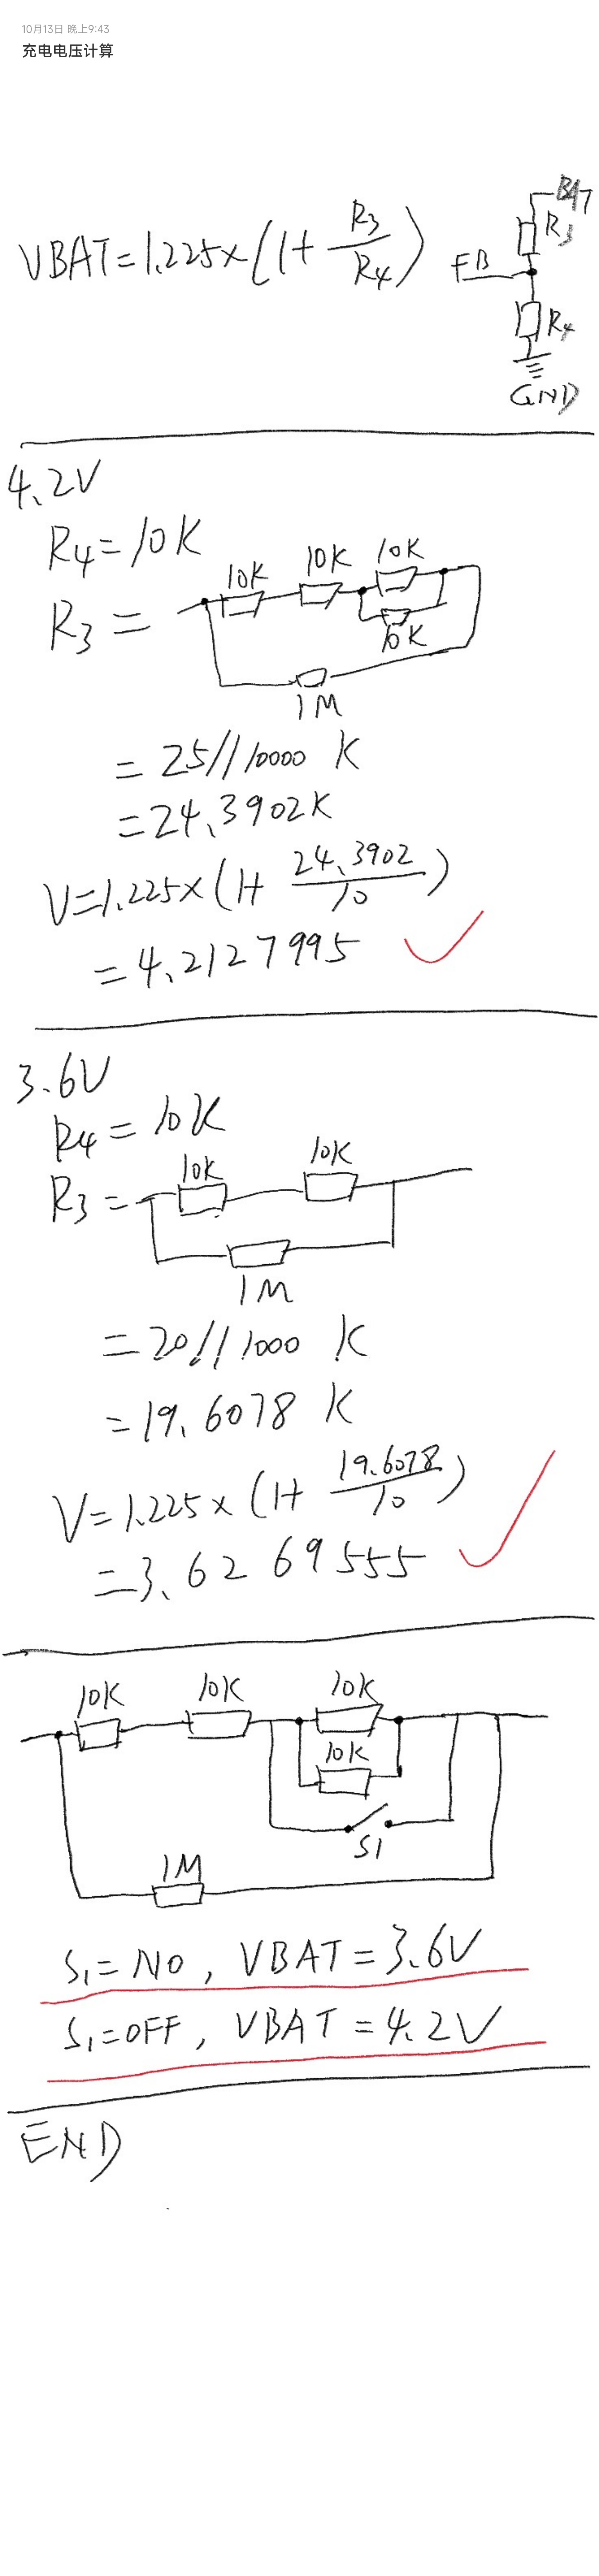 10月13日 晚上9:43
充电电压计算
VBAT=1.225×(1+R3/R4)
BAT
R3
FB
R4
GND
4.2V
R4=10K
10K 10K 10K
R3=
10K
1M
=25//10000 K
=24.3902K
V=1.225×(1+24.3902/10)
=4.2127995
3.6V
R4=10K
10K 10K
R3=
1M
=20//1000 K
=19.6078 K
V=1.225×(1+19.6078/10)
=3.6269555
10K 10K 10K
10K
S1
1M
S1=NO, VBAT=3.6V
S1=OFF, VBAT=4.2V
END